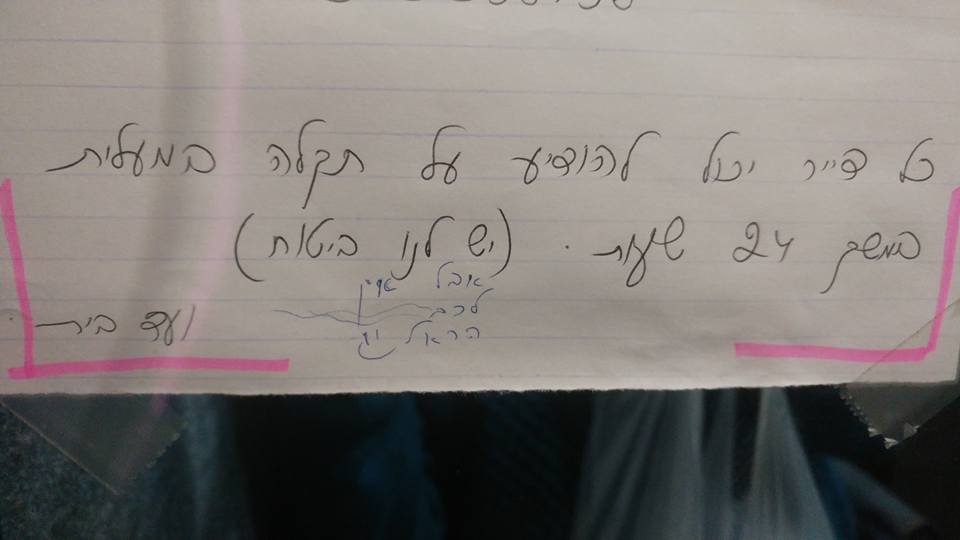 כל דייר יכול להודיע על תקלה במעלית
במשך 24 שעות. (יש לנו ביטוח)
אבל אין
לרכב
הראל
ועד בית